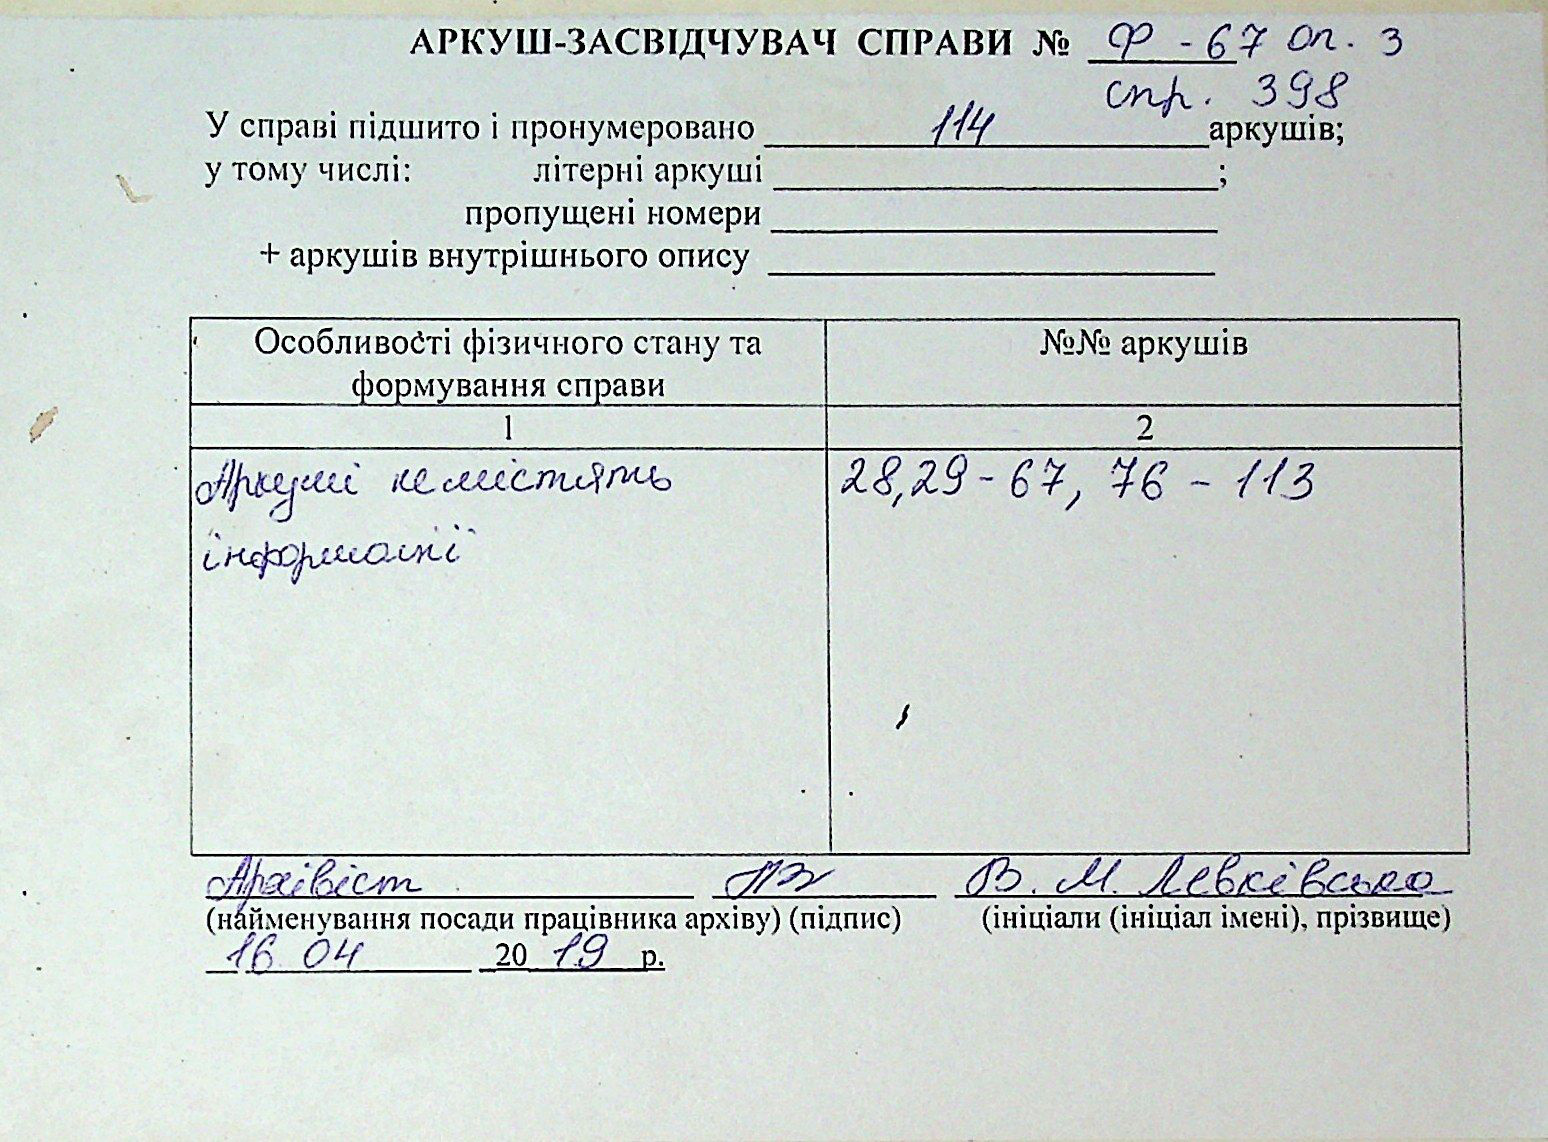 АРКУШ-ЗАСВІДЧУВАЧ СПРАВИ № Ф - 67 оп. 3
спр. 398
У справі підшито і пронумеровано 114 аркушів;
у тому числі: літерні аркуші ;
пропущені номери
+ аркушів внутрішнього опису
Особливості фізичного стану та формування справи
№№ аркушів
1 2
Аркуші не містять 28, 29 - 67, 76 - 113
інформації
Архівіст В. М. Левківська
(найменування посади працівника архіву) (підпис) (ініціали (ініціал імені), прізвище)
16 04 2019 р.